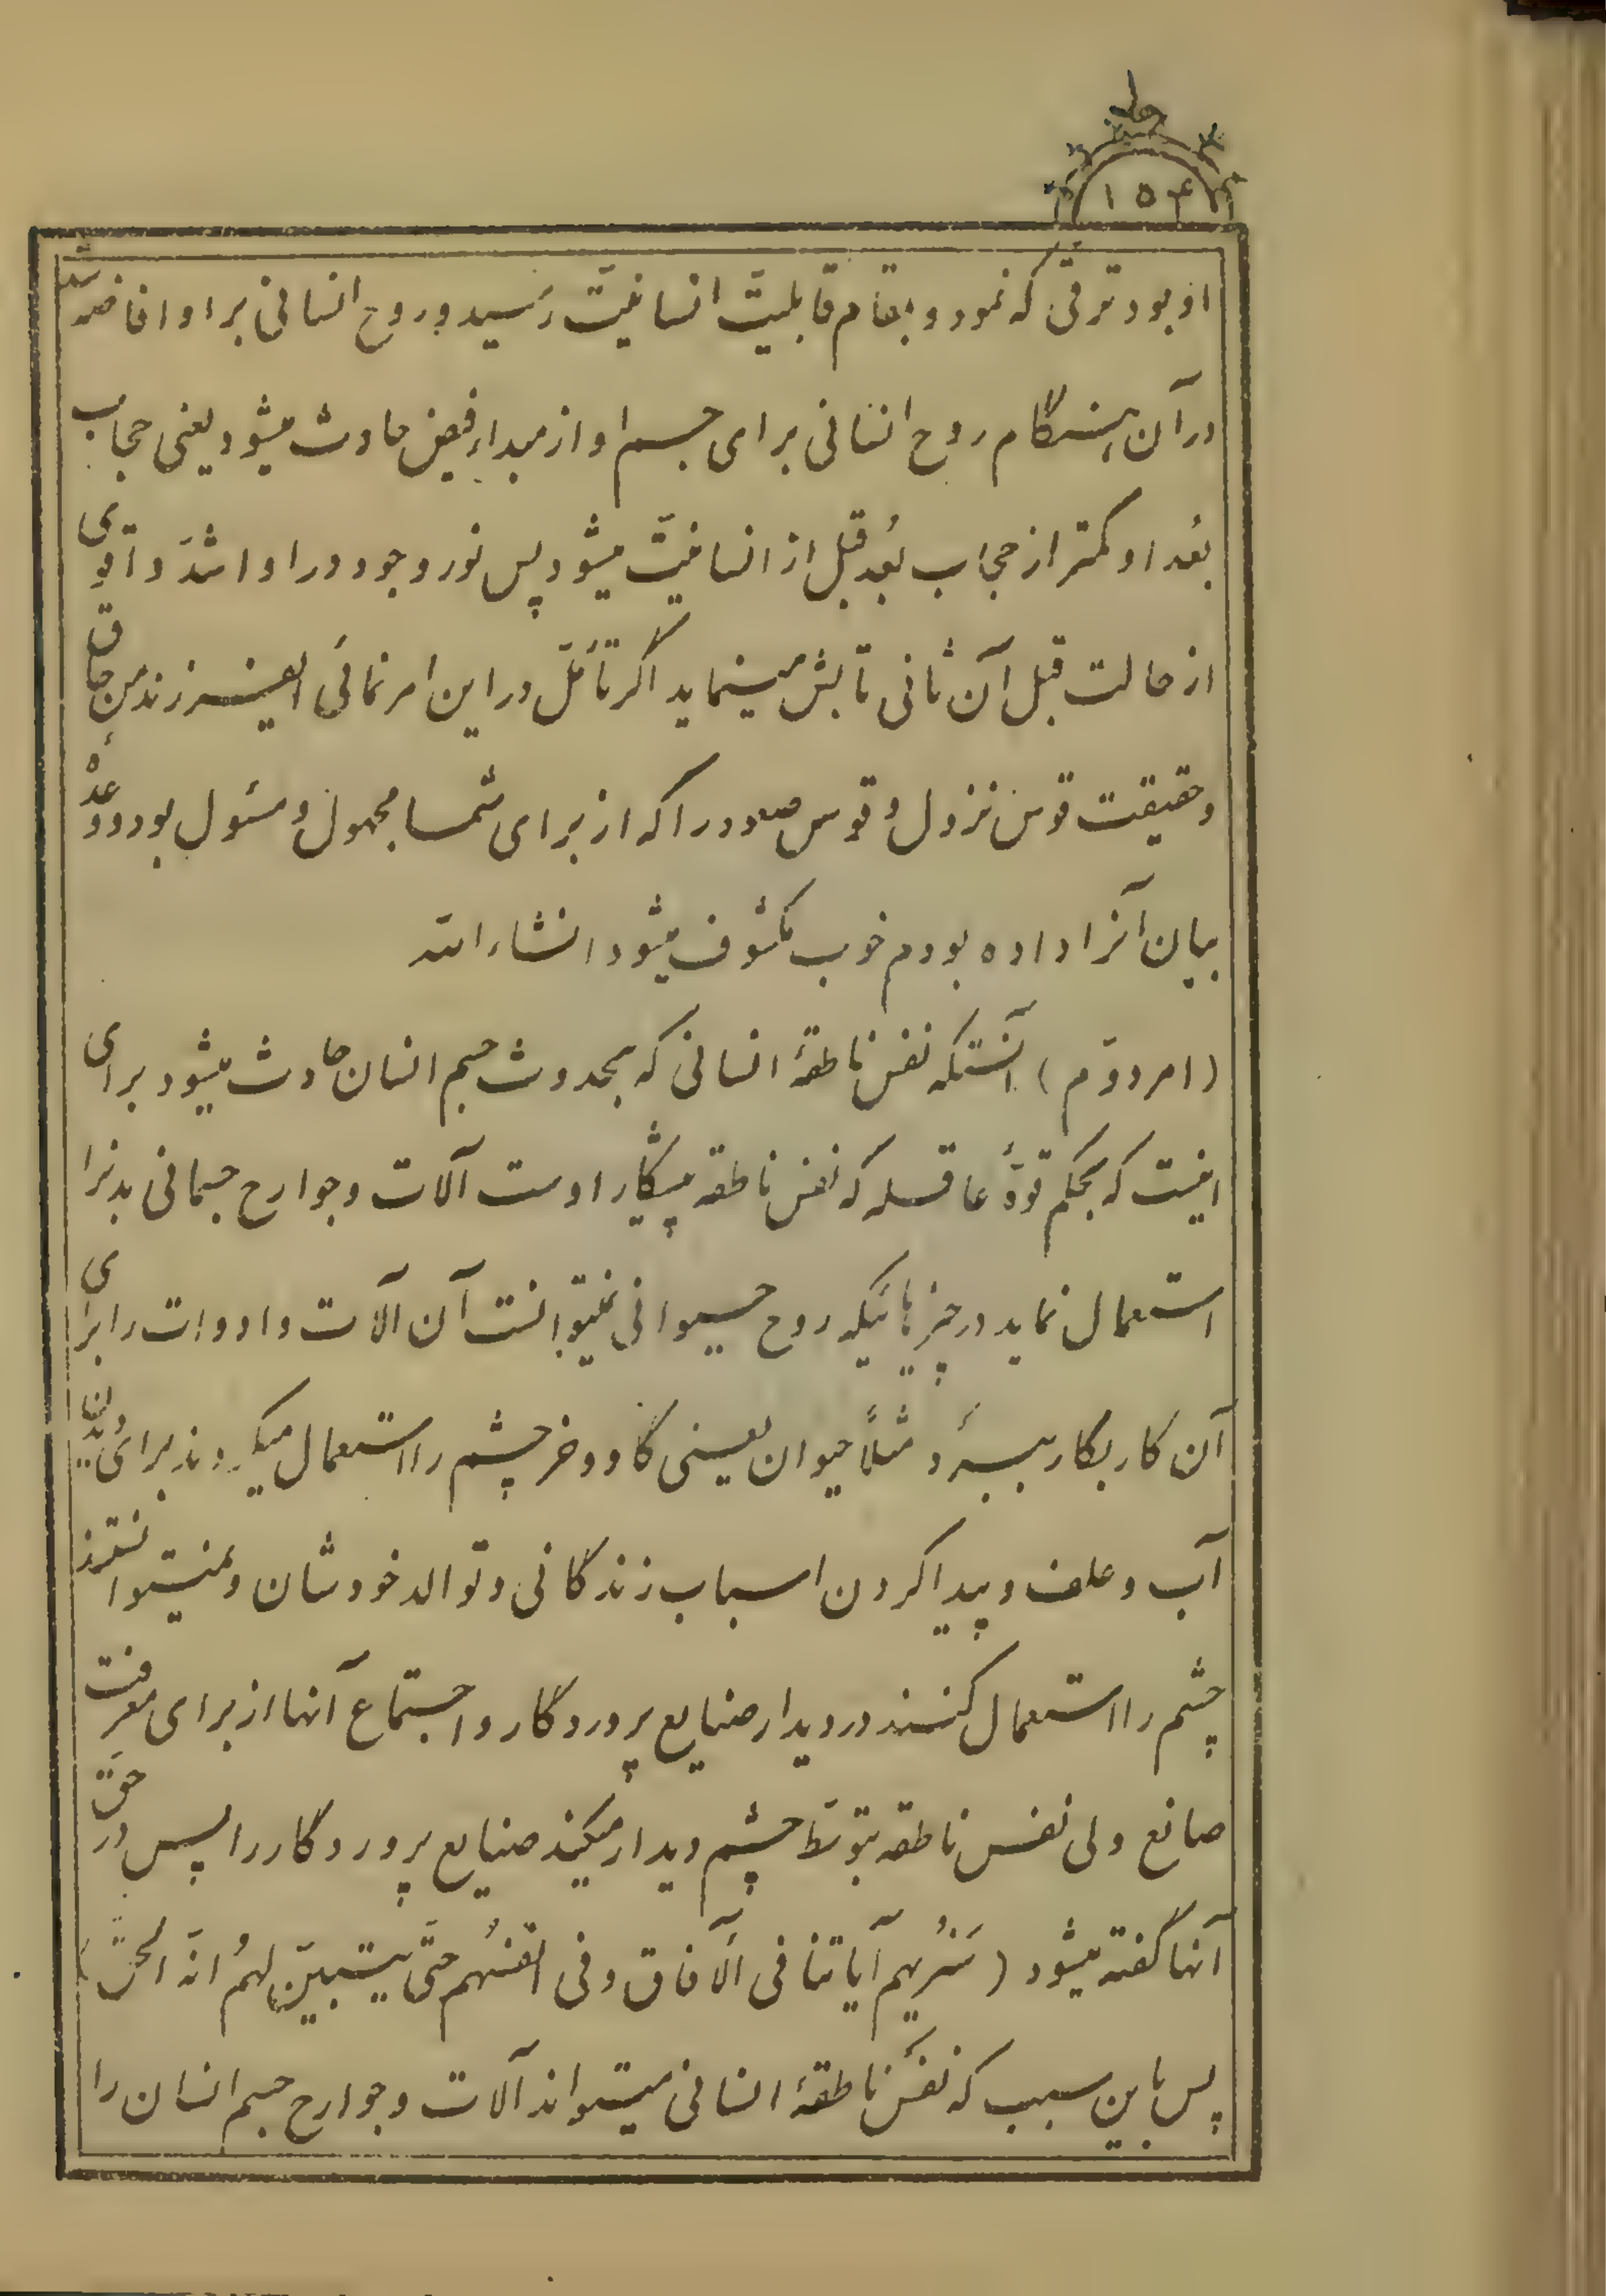 ۱۵۴
او بود ترقّی که نمود و بمقام قابلیّت انسانیّت رَسید و روح انسانی بر او افاضه شد
در آن هنگام روح انسانی برای جسم او از مبداء فیض حادث میشود یعنی حجاب
بُعد او کمتر از حجاب بُعد قبل از انسانیّت میشود پس نور وجود در او اشدّ و اقوی
از حالت قبل آن ثانی تابش مینماید اگر تأمّل در این امر نمائی ایفرزند من حاق
و حقیقت قوس نزول و قوس صعود را که از برای شما مجهول و مسئول بود و وعدۀ
بیان آنرا داده بودم خوب مکشوف میشود انشاء الله
(امر دوّم) آنستکه نفس ناطقۀ انسانی که بحدوث جسم انسان حادث میشود برای
اینست که بحکم قوّۀ عاقله که نفس ناطقه پیشکار اوست آلات و جوارح جسمانی بدنرا
استعمال نماید در چیزهائیکه روح حیوانی نمیتوانست آن آلات و ادوات را برای
آن کار بکار ببرَد مثلاً حیوان یعنی گاو و خر چشم را استعمال میکردند برای دیدن
آب و علف و پیدا کردن اسباب زندگانی و توالد خودشان و نمیتوانستند
چشم را استعمال کنند در دیدار صنایع پروردگار و اجتماع آنها از برای معرفت
صانع ولی نفس ناطقه بتوسّط چشم دیدار میکند صنایع پروردگار را پس در حقّ
آنها گفته میشود (سَنُریهم آیاتنا فی الآفاق و فی انفسهُم حتّی یتبیّن لهمُ انّه الحقّ)
پس باین سبب که نفس ناطقۀ انسانی میتواند آلات و جوارح جسم انسان را